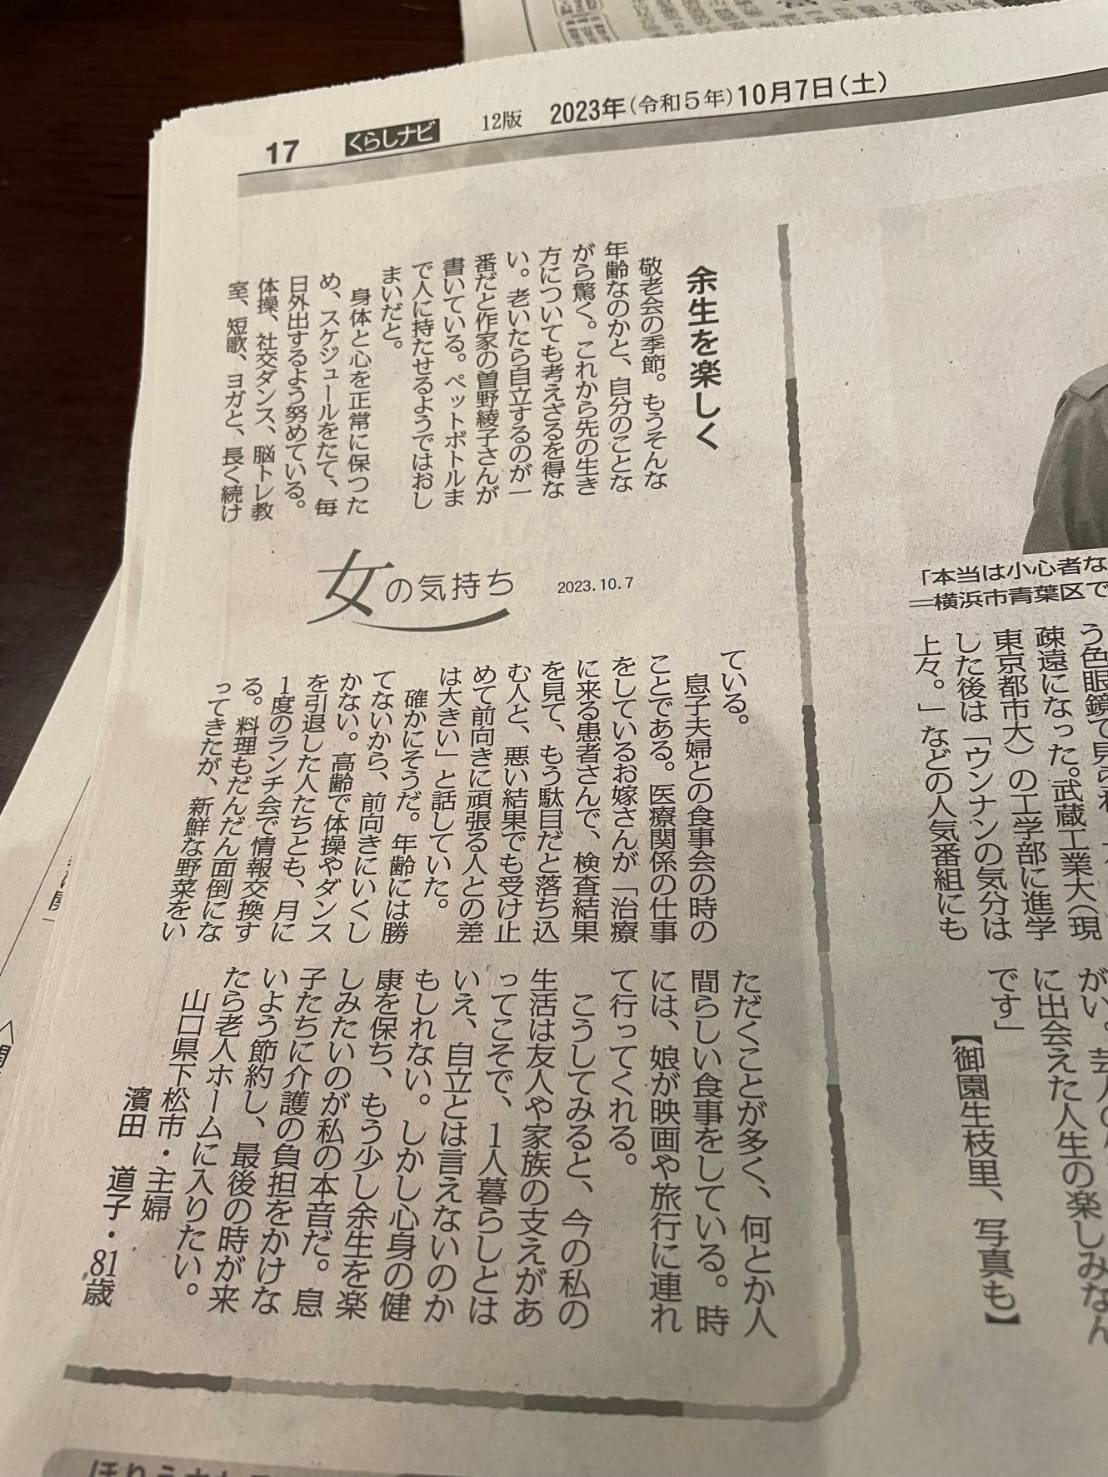 17 くらしナビ 12版 2023年(令和5年)10月7日(土)
余生を楽しく
敬老会の季節。もうそんな
年齢なのかと、自分のことな
がら驚く。これから先の生き
方についても考えざるを得な
い。老いたら自立するのが一
番だと作家の曽野綾子さんが
書いている。ペットボトルま
で人に持たせるようではおし
まいだと。
身体と心を正常に保つた
め、スケジュールをたて、毎
日外出するよう努めている。
体操、社交ダンス、脳トレ教
室、短歌、ヨガと、長く続け
女の気持ち 2023.10.7
ている。
息子夫婦との食事会の時の
ことである。医療関係の仕事
をしているお嫁さんが「治療
に来る患者さんで、検査結果
を見て、もう駄目だと落ち込
む人と、悪い結果でも受け止
めて前向きに頑張る人との差
は大きい」と話していた。
確かにそうだ。年齢には勝
てないから、前向きにいくし
かない。高齢で体操やダンス
を引退した人たちとも、月に
1度のランチ会で情報交換す
る。料理もだんだん面倒にな
ってきたが、新鮮な野菜をい
ただくことが多く、何とか人
間らしい食事をしている。時
には、娘が映画や旅行に連れ
て行ってくれる。
こうしてみると、今の私の
生活は友人や家族の支えがあ
ってこそで、1人暮らしとは
いえ、自立とは言えないのか
もしれない。しかし心身の健
康を保ち、もう少し余生を楽
しみたいのが私の本音だ。息
子たちに介護の負担をかけな
いよう節約し、最後の時が来
たら老人ホームに入りたい。
山口県下松市・主婦
濱田 道子・81歳
「本当は小心者な
=横浜市青葉区で
う色眼鏡で見られ
疎遠になった。武蔵工業大(現
東京都市大)の工学部に進学
した後は「ウンナンの気分は
上々。」などの人気番組にも
がい。芸人の
に出会えた人生の楽しみなん
です」
【御園生枝里、写真も】